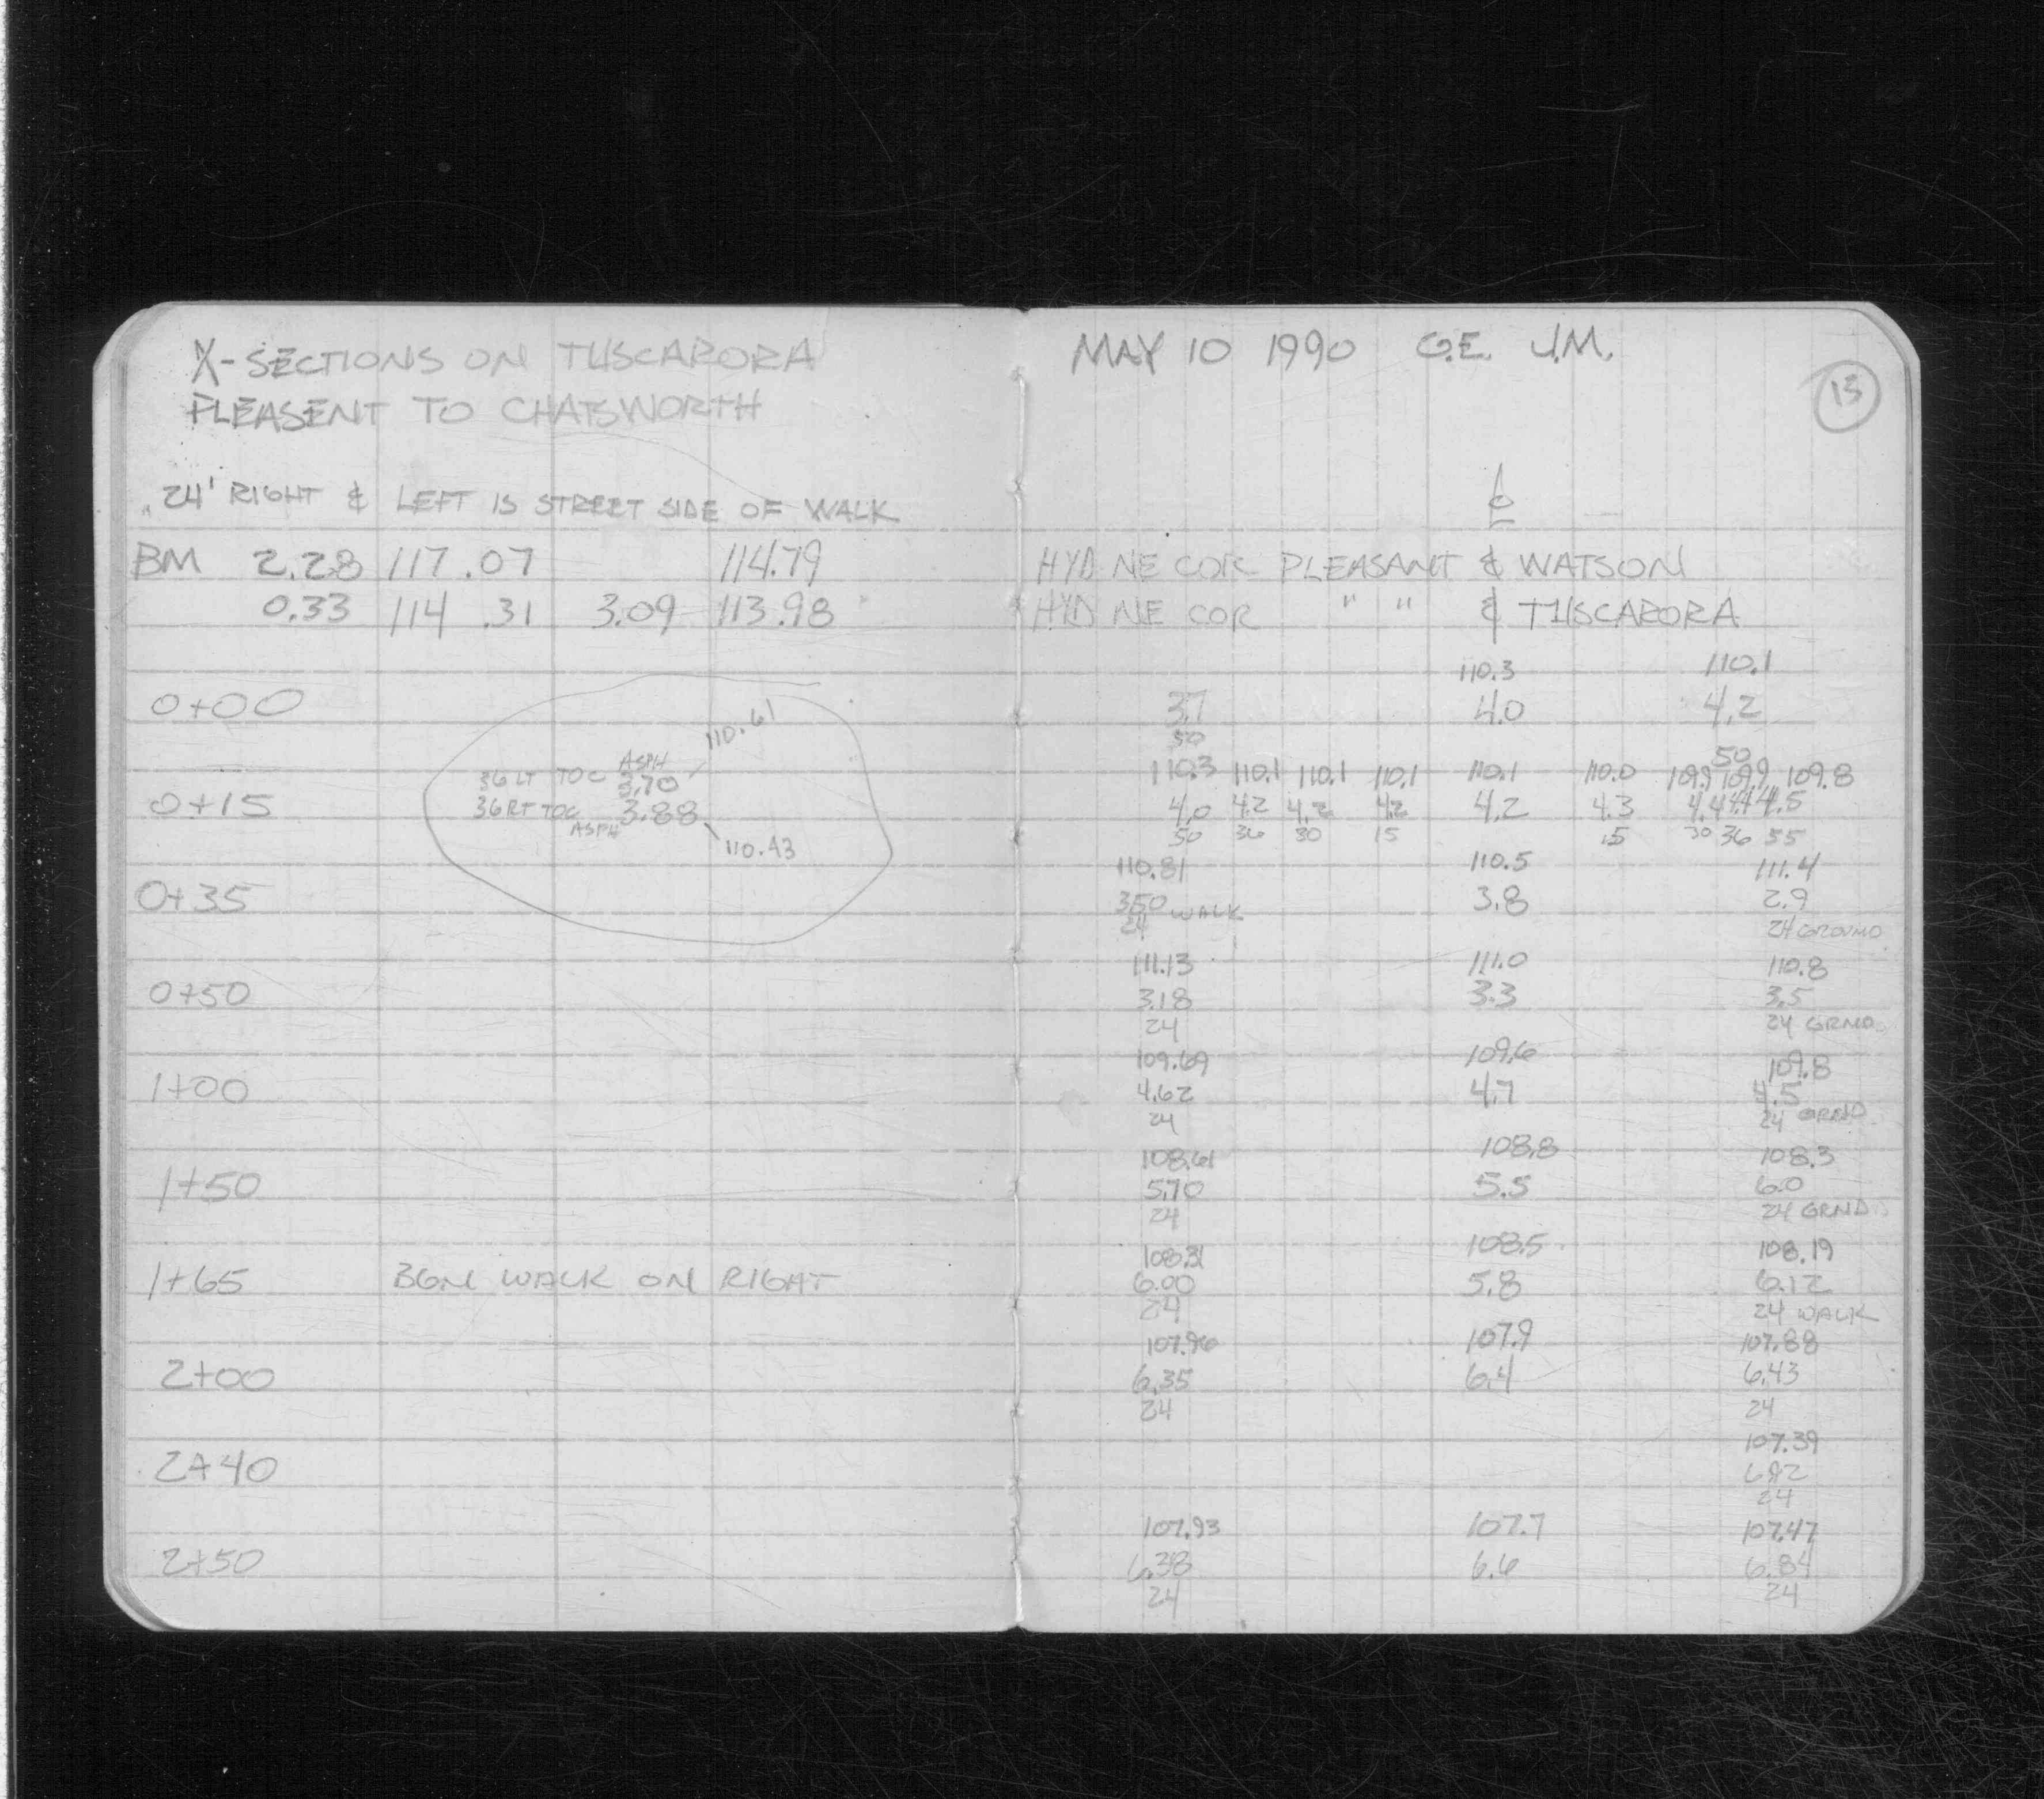 X-SECTIONS ON TUSCARORA
PLEASENT TO CHATSWORTH
24' RIGHT & LEFT IS STREET SIDE OF WALK
BM 2.28 117.07 114.79
0.33 114.31 3.09 113.98
0+00
36 LT TOC ASPH 3.70 110.61
0+15 36 RT TOC ASPH 3.88 110.43
0+35
0+50
1+00
1+50
1+65 BGN WALK ON RIGHT
2+00
2+40
2+50
MAY 10 1990 G.E. J.M.
13
HYD NE COR PLEASANT & WATSON
HYD NE COR " " & TUSCARORA
110.3 110.1
3.7 4.0 4.2
50 50
110.3 110.1 110.1 110.1 110.1 110.0 109.9 109.9 109.8
4.0 4.2 4.2 4.2 4.2 4.3 4.4 4.4 4.5
50 36 30 15 15 30 36 55
110.81 110.5 111.4
3.50 3.8 2.9
24 WALK 24 GROUND
111.13 111.0 110.8
3.18 3.3 3.5
24 24 GRND.
109.69 109.6 109.8
4.62 4.7 4.5
24 24 GRND
108.61 108.8 108.3
5.70 5.5 6.0
24 24 GRND
108.31 108.5 108.19
6.00 5.8 6.12
24 24 WALK
107.96 107.9 107.88
6.35 6.4 6.43
24 24
107.39
6.92
24
107.93 107.7 107.47
6.38 6.6 6.84
24 24